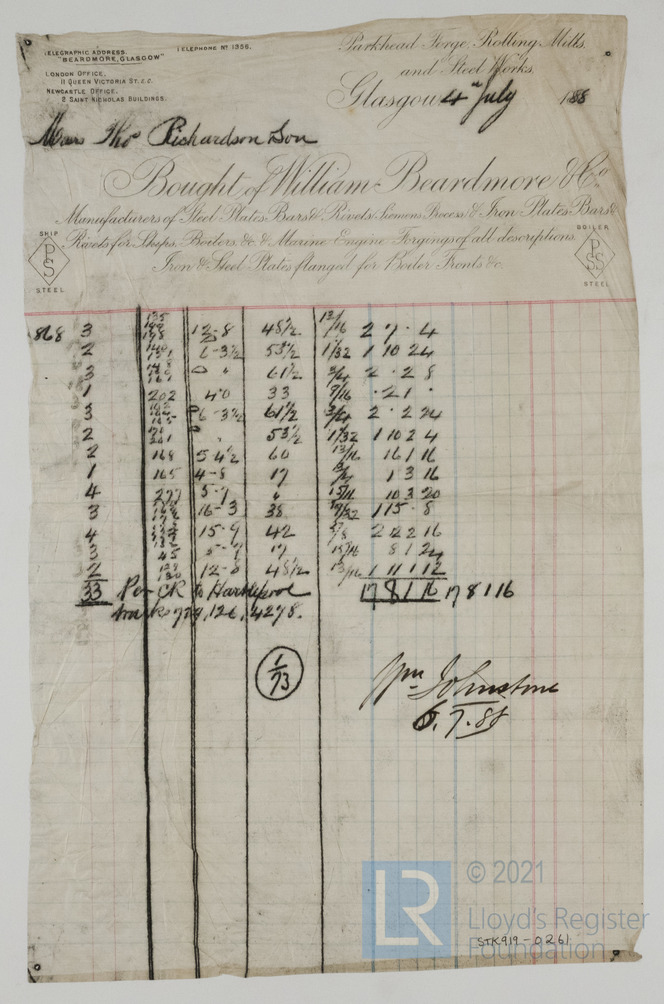 TELEGRAPHIC ADDRESS.
"BEARDMORE, GLASGOW"
TELEPHONE No 1356.
LONDON OFFICE,
11 QUEEN VICTORIA ST. E.C.
NEWCASTLE OFFICE,
2 SAINT NICHOLAS BUILDINGS.
Parkhead Forge, Rolling Mills,
and Steel Works.
Glasgow 4th July 1888
Messrs Thos Richardson Son
Bought of William Beardmore & Co
Manufacturers of Steel Plates Bars & Rivets, Siemens Process, & Iron Plates Bars &
Rivets for Ships, Boilers, &c. & Marine Engine Forgings of all descriptions.
Iron & Steel Plates flanged for Boiler Fronts &c.
SHIP
PSS
STEEL
BOILER
PSS
STEEL
868 3 12-8 48½ 13/16 2 7 · 4
2 6-3½ 53½ 11/32 1 10 2 4
3 " 61½ 3/4 2 · 2 8
1 202 4·0 33 7/16 · 2 1 ·
3 6-3½ 61½ 3/4 2 · 2 24
2 " 53½ 11/32 1 10 2 4
2 168 5 4½ 60 13/16 16 1 16
1 165 4-8 17 1 3 16
4 277 5-7 " 15/16 10 3 20
3 16-3 38 1 15 · 8
4 15-9 42 5/8 2 12 2 16
3 45 5-7 17 15/16 8 1 24
2 12-8 48½ 13/16 1 11 1 12
33 Per CR to Hartlepool 17 8 1 16 17 8 1 16
trucks 774, 126, 4278.
1/73
Wm Johnstone
6.7.88
LR
© 2021
Lloyd's Register
Foundation
STK919-0261